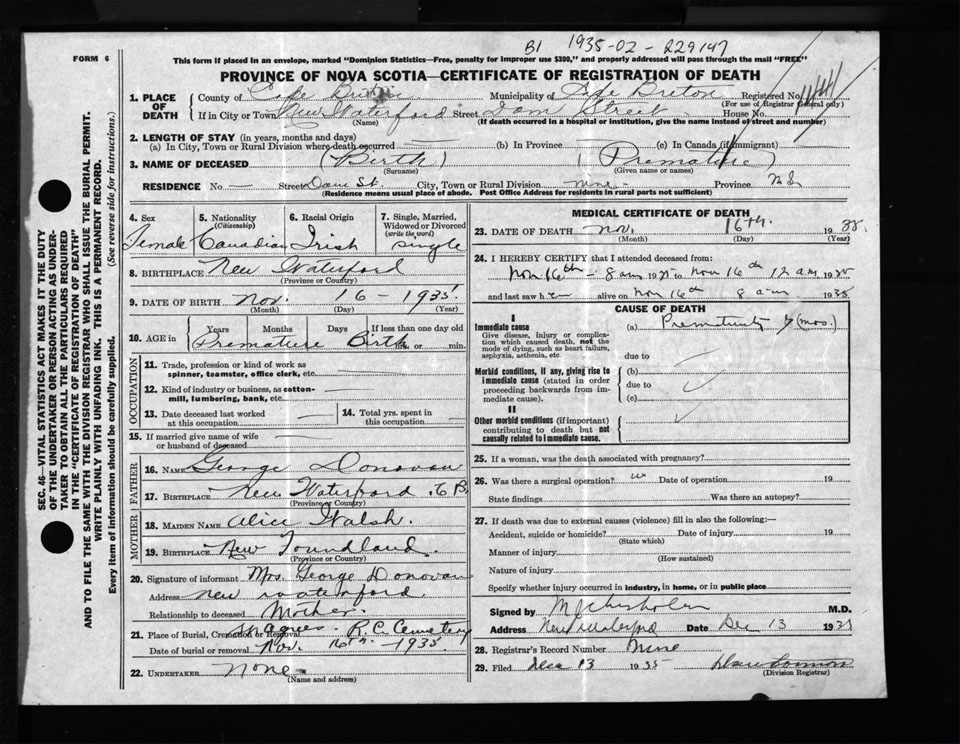 B1 1935-02-229147
FORM 6
This form if placed in an envelope, marked "Dominion Statistics—Free, penalty for improper use $300," and properly addressed will pass through the mail "FREE"
PROVINCE OF NOVA SCOTIA—CERTIFICATE OF REGISTRATION OF DEATH
1. PLACE OF DEATH
County of Cape Breton Municipality of Cape Breton Registered No.
(For use of Registrar General only)
If in City or Town New Waterford Street Dam Street House No.
(Name) (If death occurred in a hospital or institution, give the name instead of street and number)
2. LENGTH OF STAY (in years, months and days)
(a) In City, Town or Rural Division where death occurred — (b) In Province — (c) In Canada (if immigrant)
3. NAME OF DECEASED (Birth) (Premature)
(Surname) (Given name or names)
RESIDENCE No. — Street Dam St. City, Town or Rural Division Province N.S.
(Residence means usual place of abode. Post Office Address for residents in rural parts not sufficient)
4. Sex Female
5. Nationality (Citizenship) Canadian
6. Racial Origin Irish
7. Single, Married, Widowed or Divorced (write the word) Single
8. BIRTHPLACE New Waterford
(Province or Country)
9. DATE OF BIRTH Nov. 16 - 1935
(Month) (Day) (Year)
10. AGE in Years Months Days If less than one day old
Premature Birth hrs. or min.
OCCUPATION
11. Trade, profession or kind of work as spinner, teamster, office clerk, etc.
12. Kind of industry or business, as cotton-mill, lumbering, bank, etc.
13. Date deceased last worked at this occupation
14. Total yrs. spent in this occupation
15. If married give name of wife or husband of deceased
FATHER
16. NAME George Donovan
17. BIRTHPLACE New Waterford C.B.
(Province or Country)
MOTHER
18. MAIDEN NAME Alice Walsh.
19. BIRTHPLACE New Foundland.
(Province or Country)
20. Signature of informant Mrs. George Donovan
Address New Waterford
Relationship to deceased Mother.
21. Place of Burial, Cremation or Removal St. Agnes R.C. Cemetery
Date of burial or removal Nov. 16th - 1935.
22. UNDERTAKER None
(Name and address)
MEDICAL CERTIFICATE OF DEATH
23. DATE OF DEATH Nov. 16th. 19
(Month) (Day) (Year)
24. I HEREBY CERTIFY that I attended deceased from:
Nov 16th - 8 am 19 to Nov 16th 12 am 19
and last saw her alive on Nov 16th 8 am 1935
CAUSE OF DEATH
I
Immediate cause (a) Prematurity 7 (mos.)
Give disease, injury or complication which caused death, not the mode of dying, such as heart failure, asphyxia, asthenia, etc.
due to
Morbid conditions, if any, giving rise to immediate cause (stated in order proceeding backwards from immediate cause).
(b)
due to
(c)
II
Other morbid conditions (if important) contributing to death but not causally related to immediate cause.
25. If a woman, was the death associated with pregnancy?
26. Was there a surgical operation? no Date of operation 19
State findings Was there an autopsy?
27. If death was due to external causes (violence) fill in also the following:—
Accident, suicide or homicide? Date of injury 19
(State which)
Manner of injury
(How sustained)
Nature of injury
Specify whether injury occurred in industry, in home, or in public place
Signed by M. J. Chisholm M.D.
Address New Waterford Date Dec 13 19
28. Registrar's Record Number
29. Filed Dec 13 1935
(Division Registrar)
SEC. 46—VITAL STATISTICS ACT MAKES IT THE DUTY
OF THE UNDERTAKER OR PERSON ACTING AS UNDERTAKER
TO OBTAIN ALL THE PARTICULARS REQUIRED
IN THE "CERTIFICATE OF REGISTRATION OF DEATH"
AND TO FILE THE SAME WITH THE DIVISION REGISTRAR WHO SHALL ISSUE THE BURIAL PERMIT.
WRITE PLAINLY WITH UNFADING INK. THIS IS A PERMANENT RECORD.
Every item of information should be carefully supplied. (See reverse side for instructions.)